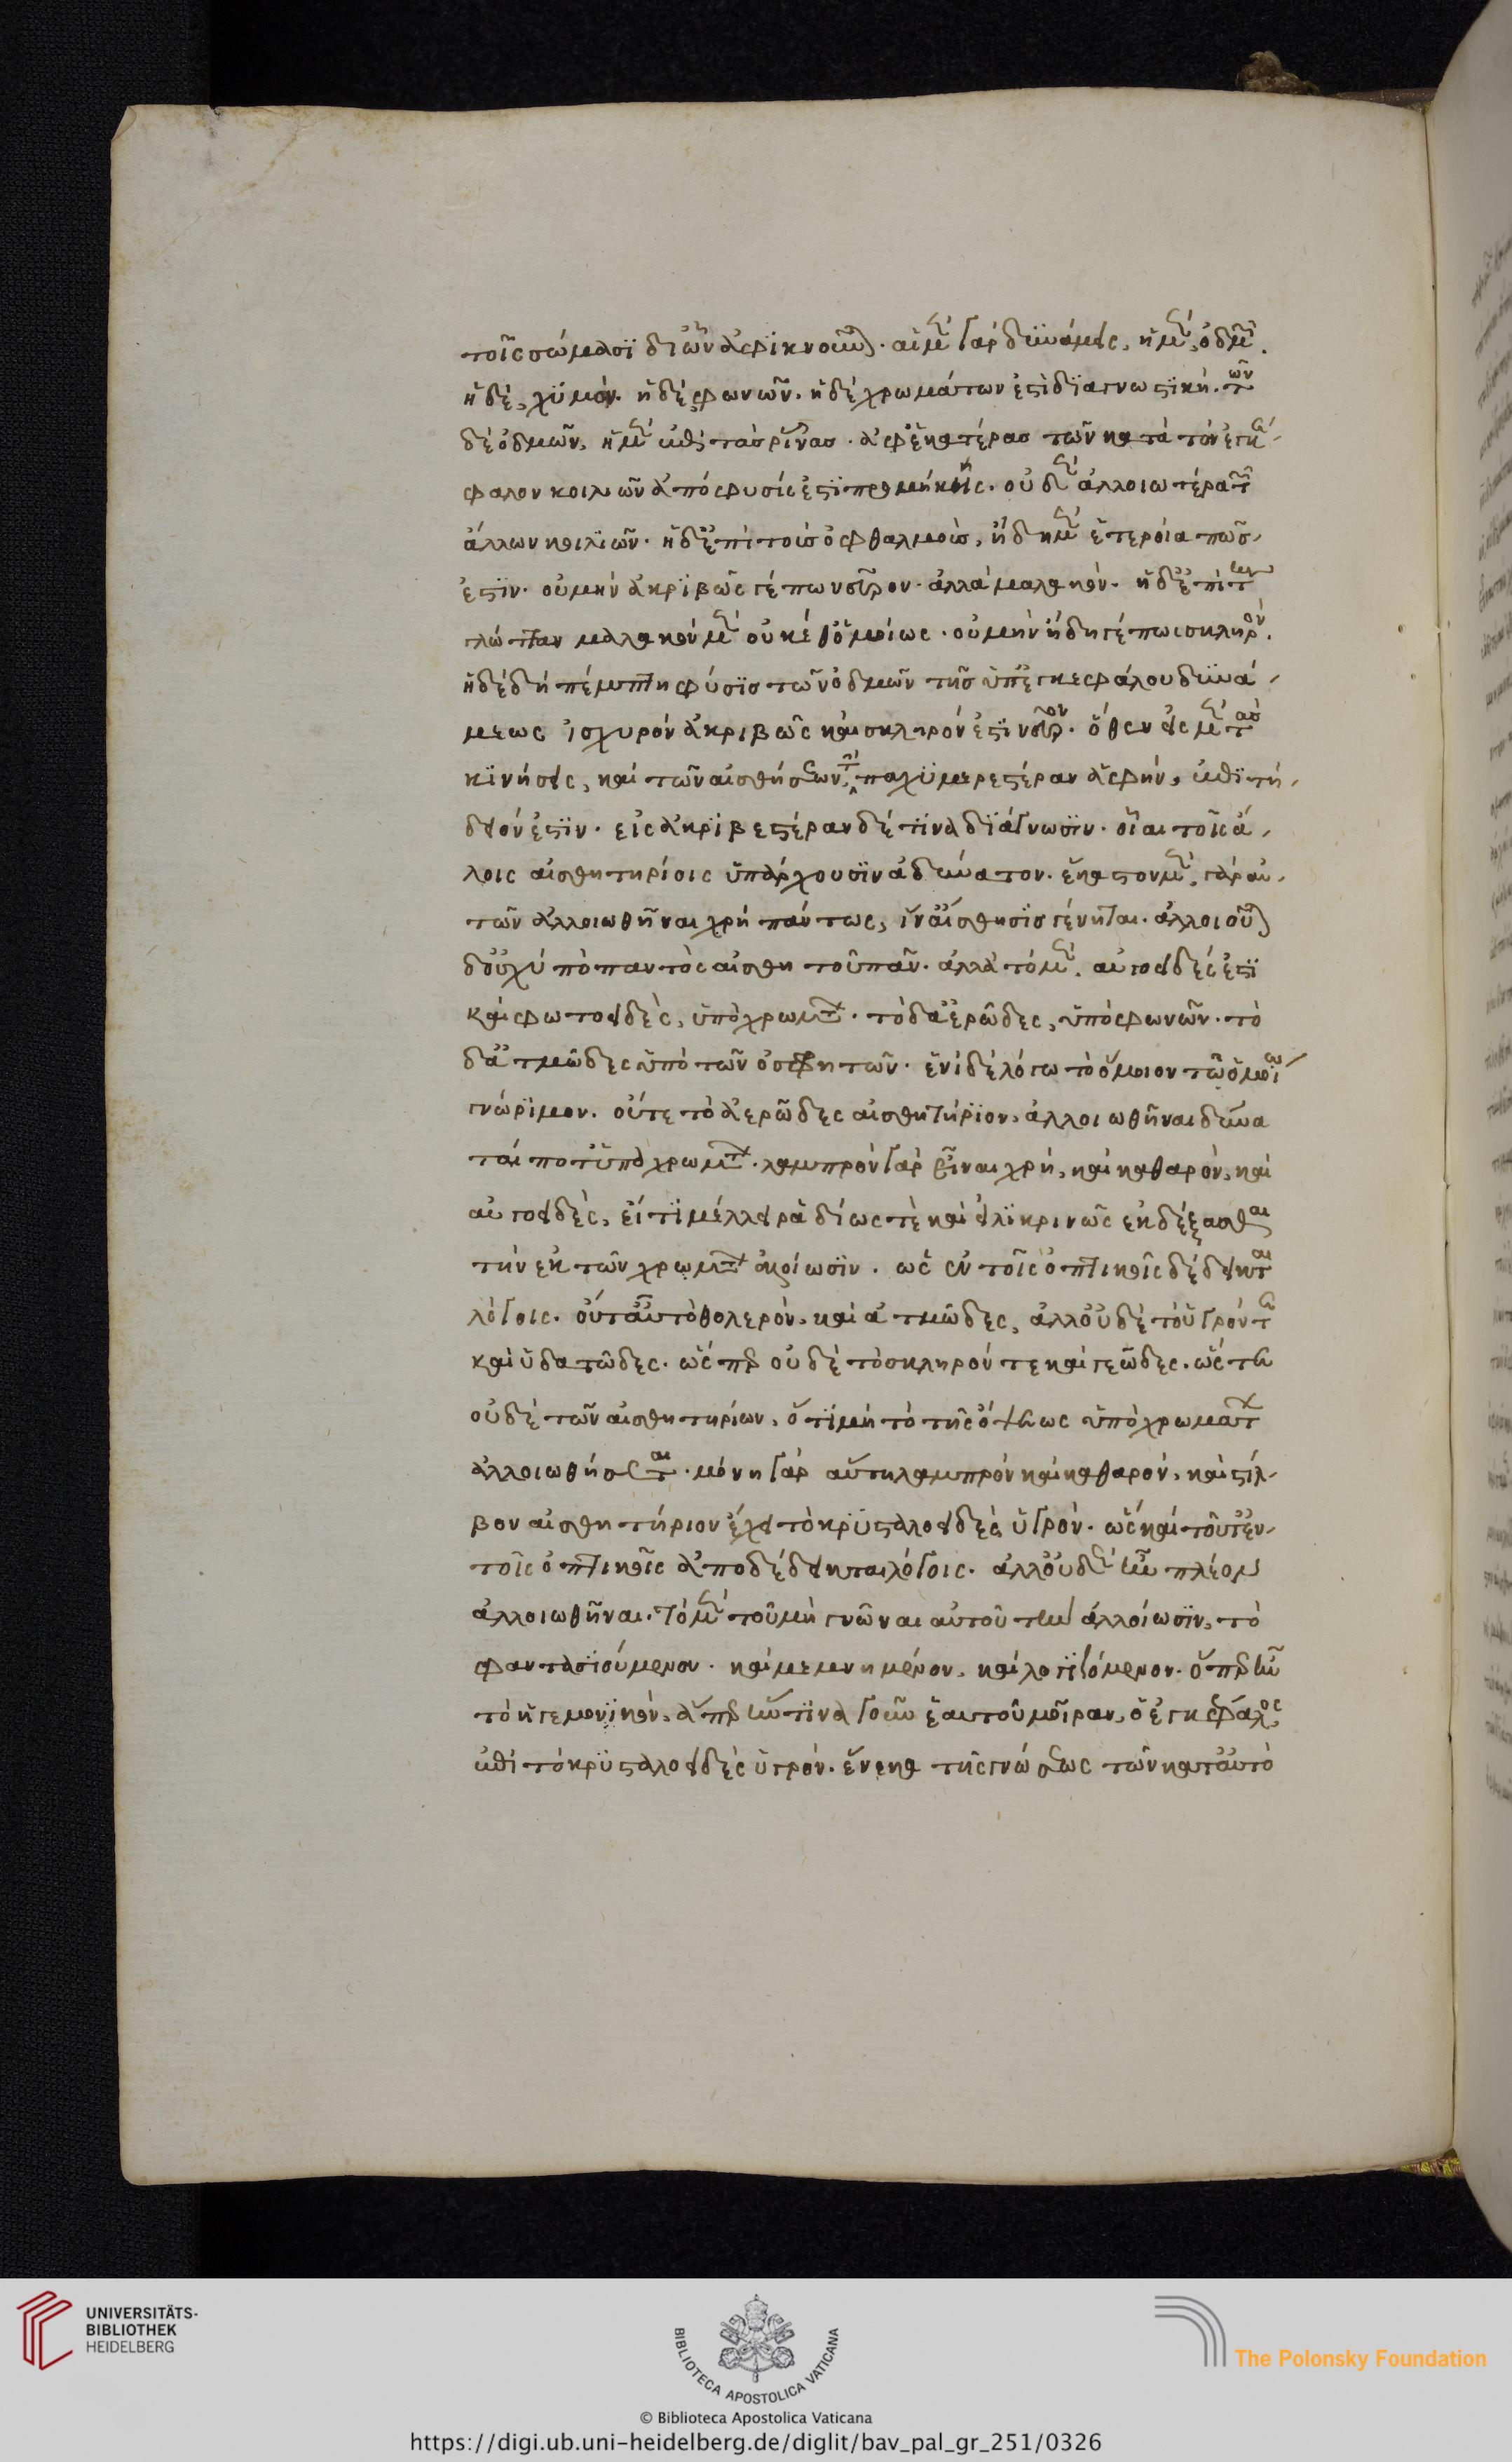 τοῖς σώμασϊ δι' ὧν ἀφϊκνοῦν). αἱ μὲν γὰρ δυνάμεις, ἡ μὲν, ὀδμῶν.
ἡ δὲ, χϋμῶν. ἡ δὲ φωνῶν. ἡ δὲ χρωμάτων ἐστὶ διαγνωστικὴ. τῶν
δὲ ὀδμῶν, ἡ μὲν ἐπὶ τὰς ῥῖνας. ἀφ' ἑκατέρας τῶν κατὰ τὸν ἐγκέ-
φαλον κοιλιῶν ἀπόφυσίς ἐστϊ προμήκης. οὐδὲν ἀλλοιωτέρα τῶν
ἄλλων κοιλϊῶν. ἡ δ' ἐπὶ τοὺς ὀφθαλμοὺς, ἤδη μὲν ἑτεροία πως
ἐστϊν. οὐ μὴν ἀκρϊβῶς γέ πω νεῦρον. ἀλλὰ μαλακὸν. ἡ δ' ἐπὶ τὴν
γλῶτταν μαλακὸν μὲν οὐκέθ' ὁμοίως. οὐ μὴν ἤδη γέ πω σκληρὸν.
ἡ δὲ δὴ πέμπτη φύσϊς τῶν ὀδμῶν τῆς ὑπ' ἐγκεφάλου δυνά-
μεως ἰσχυρὸν ἀκριβῶς καὶ σκληρὸν ἐστϊ νεῦρον. ὅθεν εἰς μὲν τὰς
κϊνήσεις, καὶ τῶν αἰσθήσεων τὴν παχϋμερεστέραν ἁφὴν, ἐπϊτή-
δειόν ἐστϊν. εἰς ἀκρϊβεστέραν δέ τϊνα δϊάγνωσϊν. οἷαι τοῖς ἄ-
λοις αἰσθητηρίοις ὑπάρχουσϊν ἀδύνατον. ἕκαστον μὲν γὰρ αὐ-
τῶν ἀλλοιωθῆναι χρὴ πάντως, ἵν' αἴσθησϊς γένηται. ἀλλοιοῦ)
δ' οὐχ ὑπὸ παντὸς αἰσθητοῦ πᾶν. ἀλλὰ τὸ μὲν αὐγοειδές ἐστϊ
καὶ φωτοειδὲς, ὑπὸ χρωμάτων. τὸ δ' ἀερῶδες, ὑπὸ φωνῶν. τὸ
δ' ἀτμῶδες ὑπὸ τῶν ὀσφρητῶν. ἑνὶ δὲ λόγω τὸ ὅμοιον τῶ ὁμοίω
γνώρϊμον. οὔτε τὸ ἀερῶδες αἰσθητήρϊον, ἀλλοιωθῆναι δύνα
ταί ποτ' ὑπὸ χρωμάτων. λαμπρὸν γὰρ εἶναι χρὴ, καὶ καθαρὸν, καὶ
αὐγοειδὲς, εἴ τϊ μέλλει ῥαδίως τὲ καὶ εἰλϊκρινῶς ἐκδέξασθαι
τὴν ἐκ τῶν χρωμάτων ἀλλοίωσϊν. ὡς ἐν τοῖς ὀπτικοῖς δέδεικται
λόγοις. οὔτ' αὖ τὸ θολερὸν, καὶ ἀτμῶδες, ἀλλ' οὐδὲ τὸ ὑγρόν τε
καὶ ὑδατῶδες. ὥσπερ οὐδὲ τὸ σκληρόν τε καὶ γεῶδες. ὥστε
οὐδὲ τῶν αἰσθητηρίων, ὅτϊ μὴ τὸ τῆς ὄψεως ὑπὸ χρωμάτων
ἀλλοιωθήσεται. μόνη γὰρ αὕτη λαμπρὸν καὶ καθαρὸν, καὶ στίλ-
βον αἰσθητήριον ἔχει τὸ κρϋσταλοειδὲς ὑγρὸν. ὡς καὶ τοῦτ' ἐν
τοῖς ὀπτικοῖς ἀποδέδεικται λόγοις. ἀλλ' οὐδὲν ἦν πλέον
ἀλλοιωθῆναι. τὸ μὲν τοῦ μὴ γνῶναι αὐτοῦ τὴν ἀλλοίωσϊν, τὸ
φαντασϊούμενον. καὶ μεμνημένον, καὶ λογϊζόμενον. ὅπερ ἦν
τὸ ἡγεμονϊκὸν, ἅπερ ἦν τϊνα γοῦν ἑαυτοῦ μοῖραν, ὁ ἐγκέφαλος
ἐπὶ τὸ κρϋσταλοειδὲς ὑγρὸν. ἕνεκα τῆς γνώσεως τῶν κατ' αὐτὸ
UNIVERSITÄTS-
BIBLIOTHEK
HEIDELBERG
BIBLIOTECA APOSTOLICA VATICANA
The Polonsky Foundation
© Biblioteca Apostolica Vaticana
https://digi.ub.uni-heidelberg.de/diglit/bav_pal_gr_251/0326